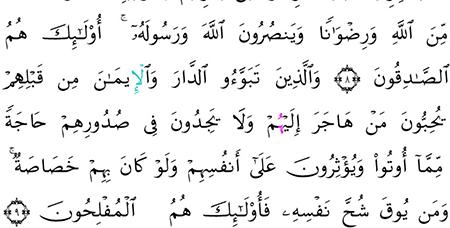 مِّنَ ٱللَّهِ وَرِضْوَٰنًا وَيَنصُرُونَ ٱللَّهَ وَرَسُولَهُۥٓ ۚ أُوْلَٰٓئِكَ هُمُ
ٱلصَّٰدِقُونَ ٨ وَٱلَّذِينَ تَبَوَّءُو ٱلدَّارَ وَٱلْإِيمَٰنَ مِن قَبْلِهِمْ
يُحِبُّونَ مَنْ هَاجَرَ إِلَيْهِمْ وَلَا يَجِدُونَ فِى صُدُورِهِمْ حَاجَةً
مِّمَّآ أُوتُوا۟ وَيُؤْثِرُونَ عَلَىٰٓ أَنفُسِهِمْ وَلَوْ كَانَ بِهِمْ خَصَاصَةٌ ۚ
وَمَن يُوقَ شُحَّ نَفْسِهِۦ فَأُوْلَٰٓئِكَ هُمُ ٱلْمُفْلِحُونَ ٩